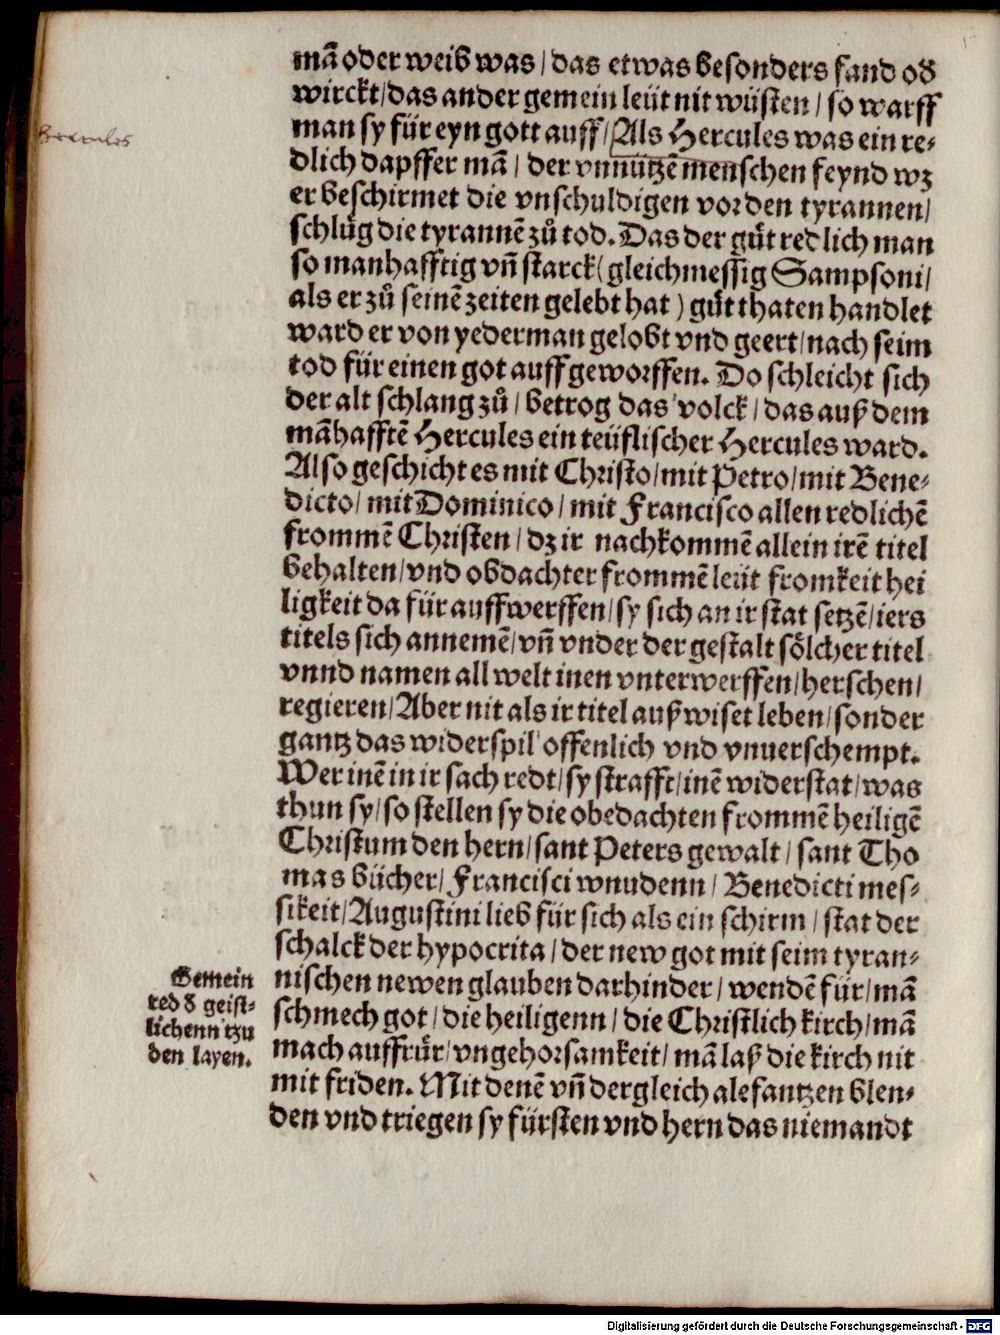 mā oder weib was / das etwas besonders fand od
wirckt / das ander gemein leüt nit wüsten / so warff
man sy für eyn gott auff / Als Hercules was ein re⸗
dlich dapffer mā / der vnnützē menschen feynd wz
er beschirmet die vnschuldigen vor den tyrannen /
schlůg die tyrannē zů tod. Das der gůt redlich man
so manhafftig vñ starck (gleichmessig Sampsoni /
als er zů seinē zeiten gelebt hat) gůtthaten handlet
ward er von yederman gelobt vnd geert / nach seim
tod für einen got auffgeworffen. Do schleicht sich
der alt schlang zů / betrog das volck / das auß dem
māhafftē Hercules ein teüflischer Hercules ward.
Also geschicht es mit Christo / mit Petro / mit Bene⸗
dicto / mit Dominico / mit Francisco allen redlichē
frommē Christen / dz ir nachkommē allein irē titel
behalten / vnd obdachter frommē leüt fromkeit hei
ligkeit da für auffwerffen / sy sich an ir stat setzē / iers
titels sich annemē / vñ vnder der gestalt sölcher titel
vnnd namen all welt inen vnterwerffen / herschen /
regieren / Aber nit als ir titel außwiset leben / sonder
gantz das widerspil offenlich vnd vnuerschempt.
Wer inē in ir sach redt / sy strafft / inē widerstat / was
thun sy / so stellen sy die obedachten frommē heiligē
Christum den hern / sant Peters gewalt / sant Tho
mas bücher / Francisci wnudenn / Benedicti mes⸗
sikeit / Augustini lieb für sich als ein schirm / stat der
schalck der hypocrita / der new got mit seim tyran⸗
Gemein
red d geist⸗
lichenn tzu
den layen.
nischen newen glauben darhinder / wendē für / mā
schmech got / die heiligenn / die Christlich kirch / mā
mach auffrůr / vngehorsamkeit / mā laß die kirch nit
mit friden. Mit denē vñ dergleich alefantzen blen⸗
den vnd triegen sy fürsten vnd hern das niemandt
Digitalisierung gefördert durch die Deutsche Forschungsgemeinschaft - DFG